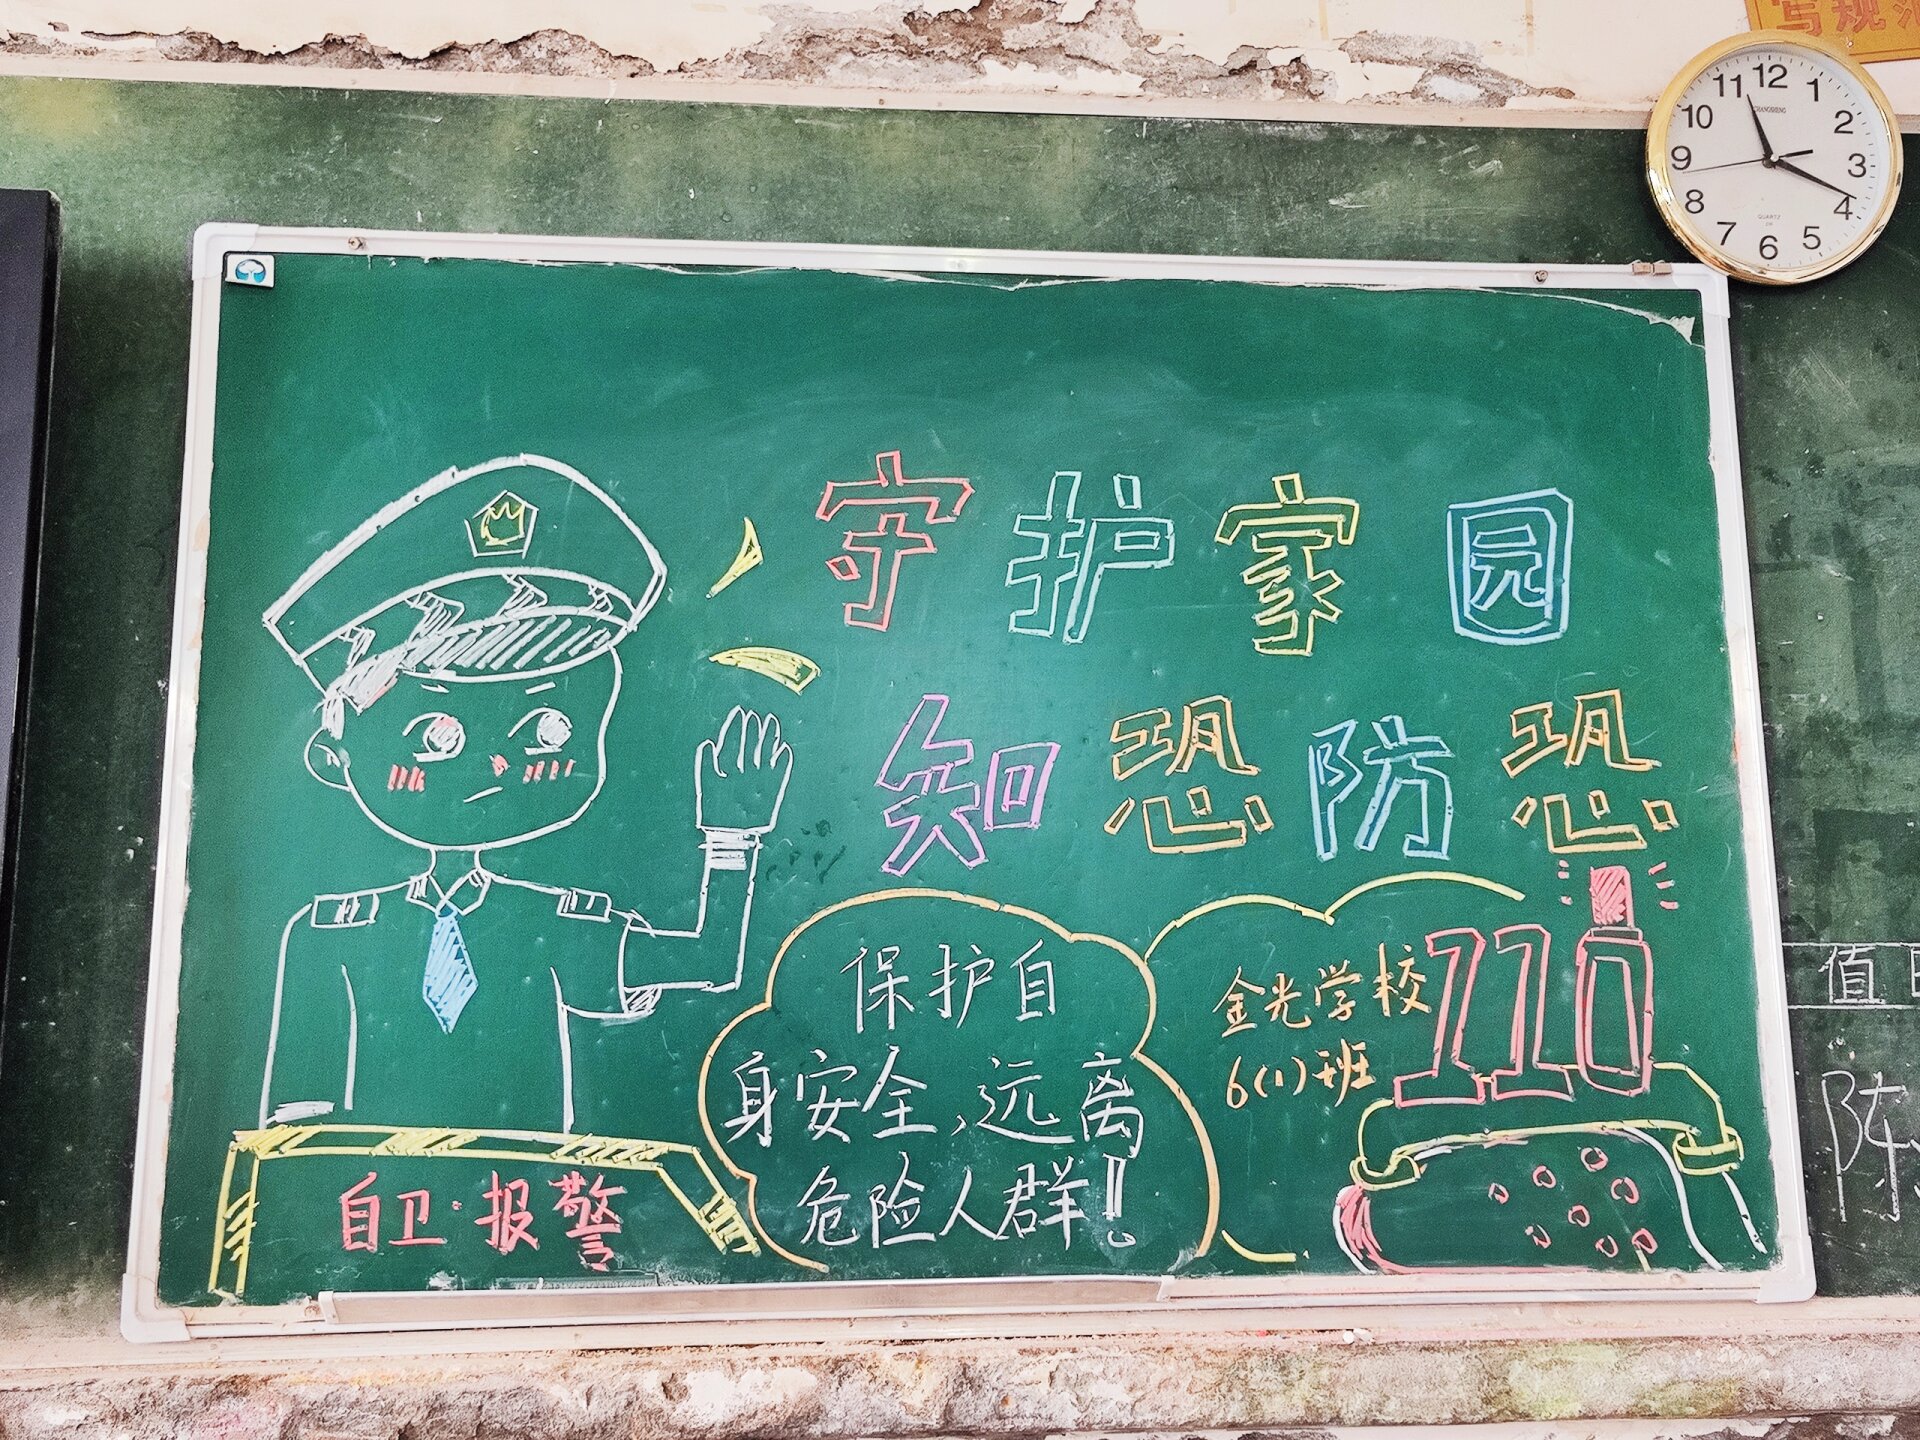 写规
12
1
2
3
4
5
6
7
8
9
10
11
QUARTZ
守护家园
知恐防恐
保护自
身安全、远离
危险人群!
金光学校
6(1)班
110
自卫·报警
值
陈